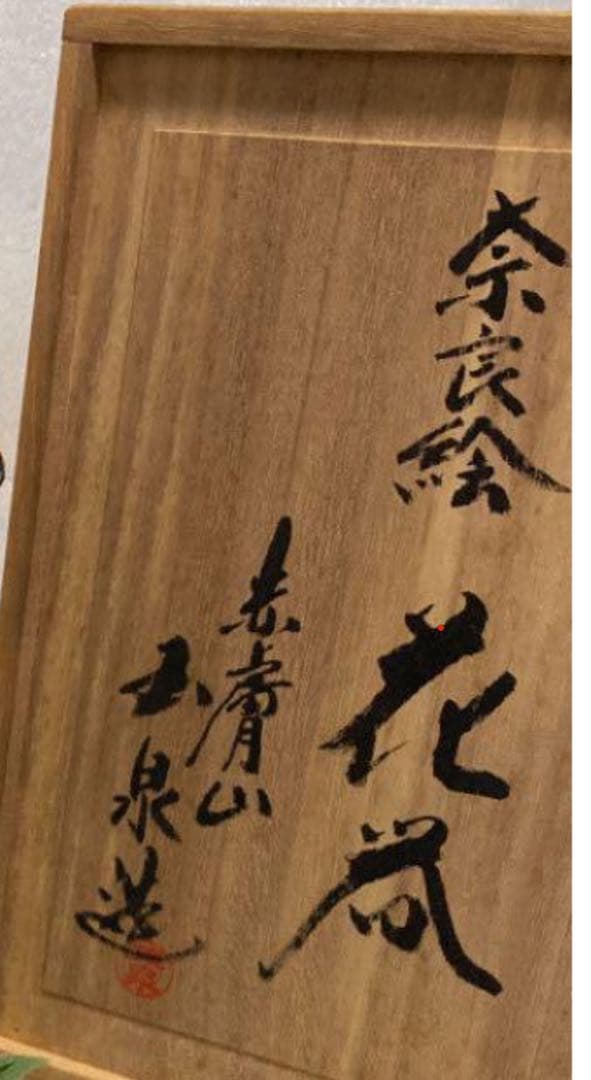 奈良絵
花筒
赤膚山
玉泉造